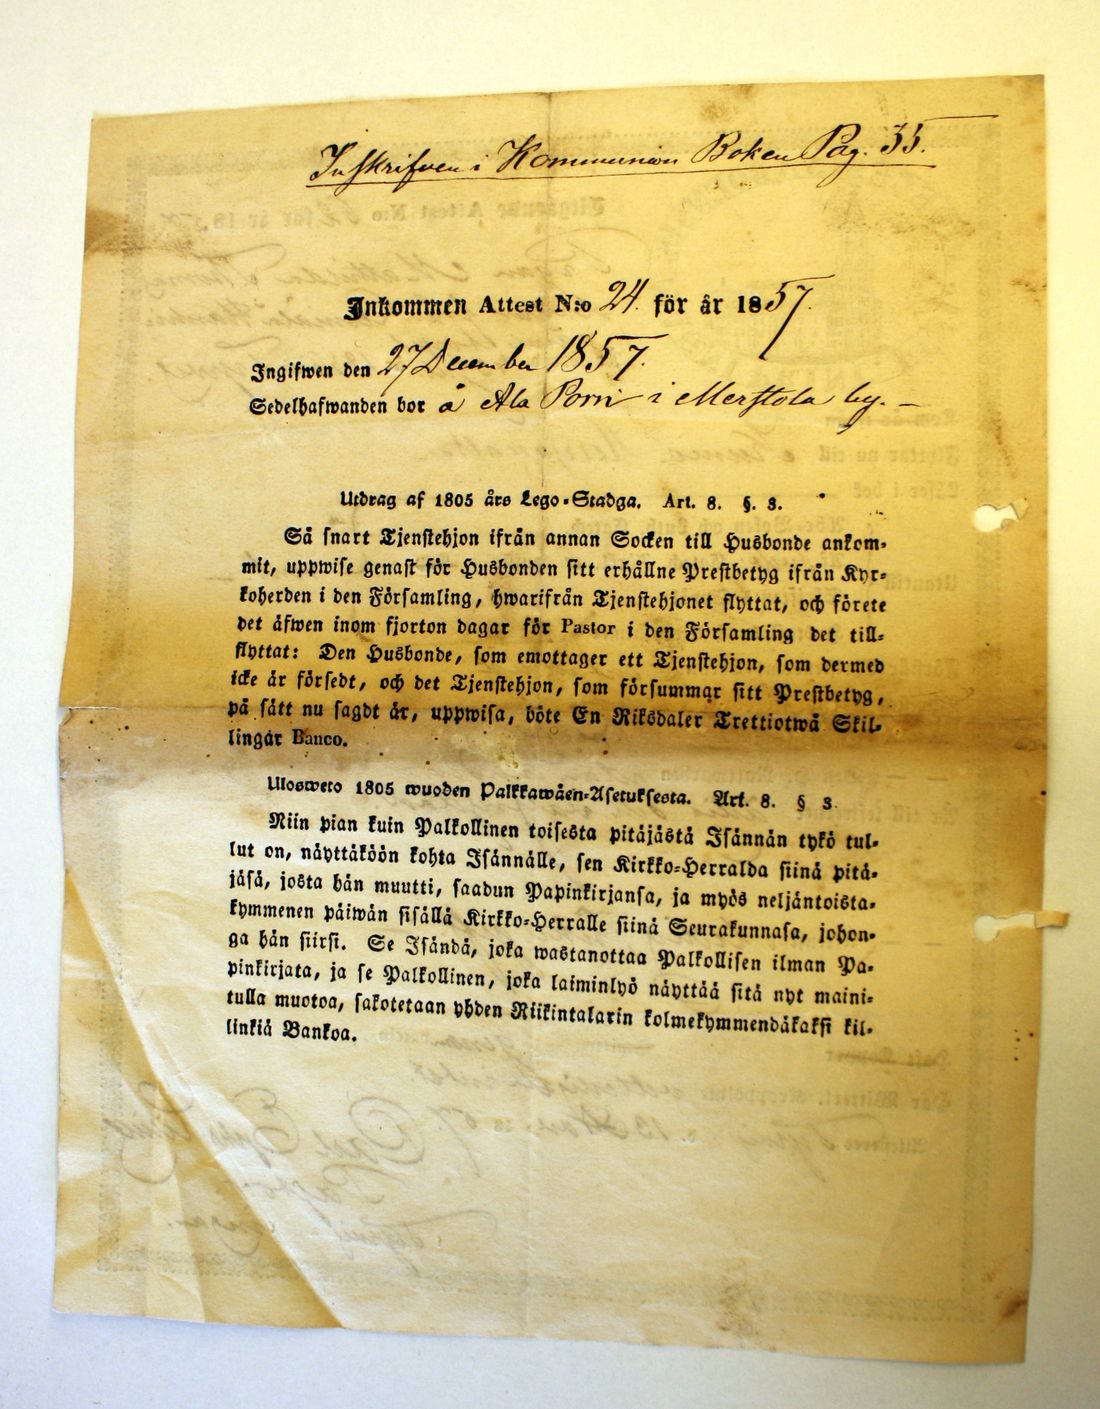 Inskrifven i Kommunion Boken Pag. 35.
Inkommen Attest N:o 24. för år 1857.
Ingifwen den 27 December 1857.
Sedelhafwanden bor å Ala Porri i Merstola by. –
Utdrag af 1805 års Lego-Stadga. Art. 8. §. 3.
Så snart Tjenstehjon ifrån annan Socken till Husbonde ankom-
mit, uppwise genast för Husbonden sitt erhållne Prestbetyg ifrån Kyr-
koherden i den Församling, hwarifrån Tjenstehjonet flyttat, och förete
det äfwen inom fjorton dagar för Pastor i den Församling det till-
flyttat: Den Husbonde, som emottager ett Tjenstehjon, som dermed
icke är försedt, och det Tjenstehjon, som försummar sitt Prestbetyg,
på sätt nu sagdt är, uppwisa, böte En Riksdaler Trettiotwå Skil-
lingar Banco.
Ulosweto 1805 wuoden Palkkawäen-Asetuksesta. Art. 8. § 3.
Niin pian kuin Palkollinen toisesta pitäjästä Isännän tykö tul-
lut on, näyttäköön kohta Isännälle, sen Kirkko-Herralda siinä pitä-
jäsä, josta hän muutti, saadun Papinkirjansa, ja myös neljäntoista-
kymmenen päiwän sisällä Kirkko-Herralle siinä Seurakunnasa, johon-
ga hän siirsi. Se Isändä, joka wastanottaa Palkollisen ilman Pa-
pinkirjata, ja se Palkollinen, joka laiminlyö näyttää sitä nyt maini-
tulla muotoa, sakotetaan yhden Riikintalarin kolmekymmendäkaksi kil-
linkiä Bankoa.